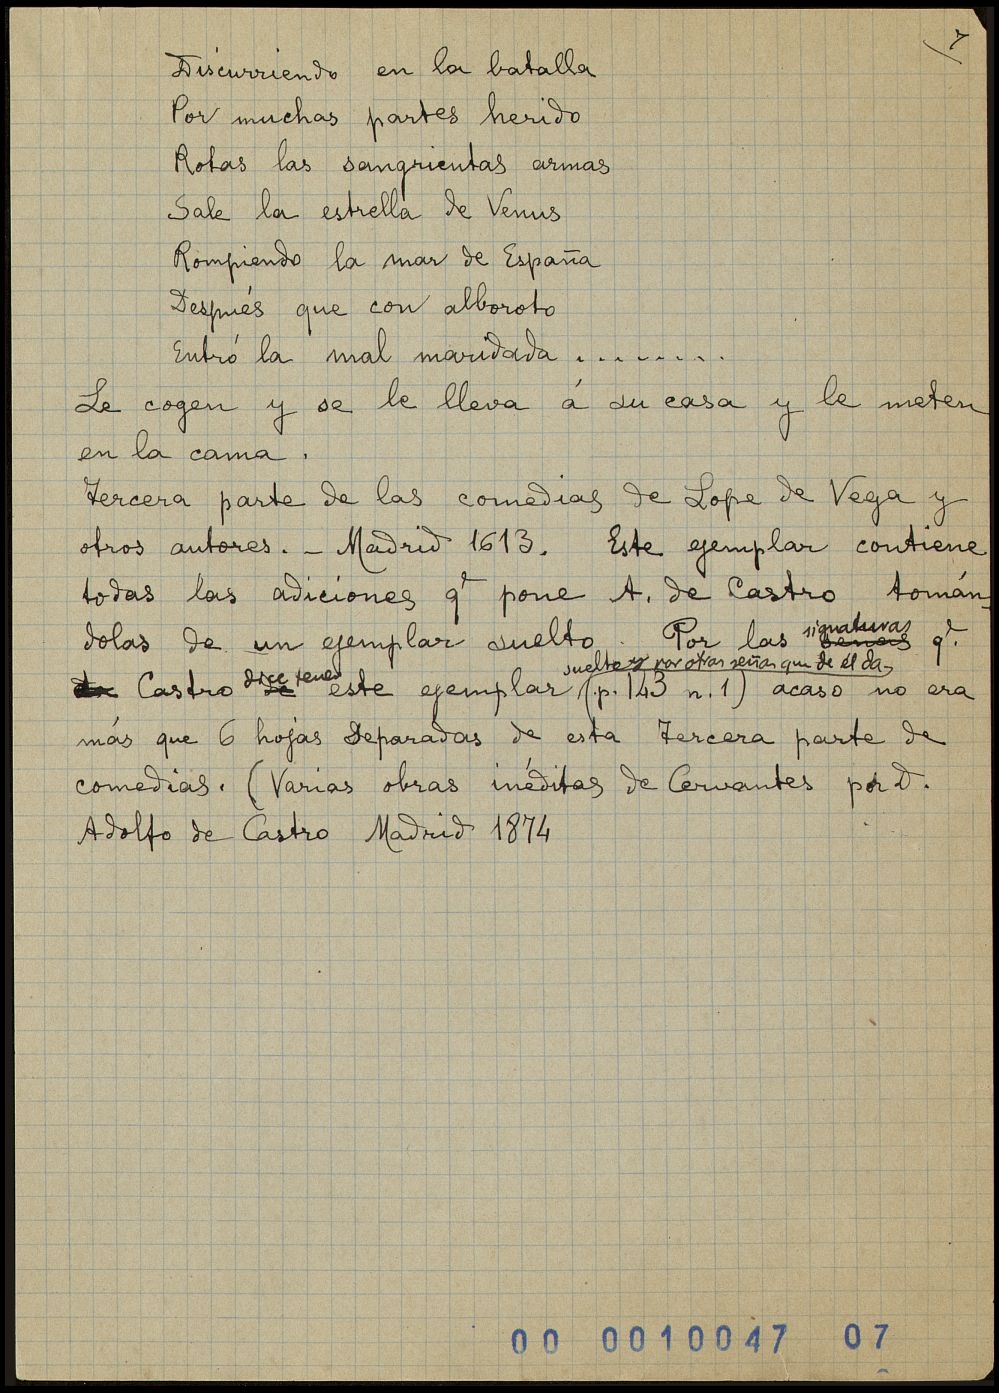 7
Discurriendo en la batalla
Por muchas partes herido
Rotas las sangrientas armas
Sale la estrella de Venus
Rompiendo la mar de España
Después que con alboroto
Entró la mal maridada ........
Le cogen y se le lleva á su casa y le meten
en la cama.
Tercera parte de las comedias de Lope de Vega y
otros autores. - Madrid 1613. Este ejemplar contiene
todas las adiciones q.e pone A. de Castro tomán-
dolas de un ejemplar suelto. Por las señas q.e
signaturas
suelto y por otras señas que de él da
Castro dice tener este ejemplar (p. 143 n. 1) acaso no era
más que 6 hojas separadas de esta Tercera parte de
comedias. (Varias obras inéditas de Cervantes por D.
Adolfo de Castro Madrid 1874
00 0010047 07